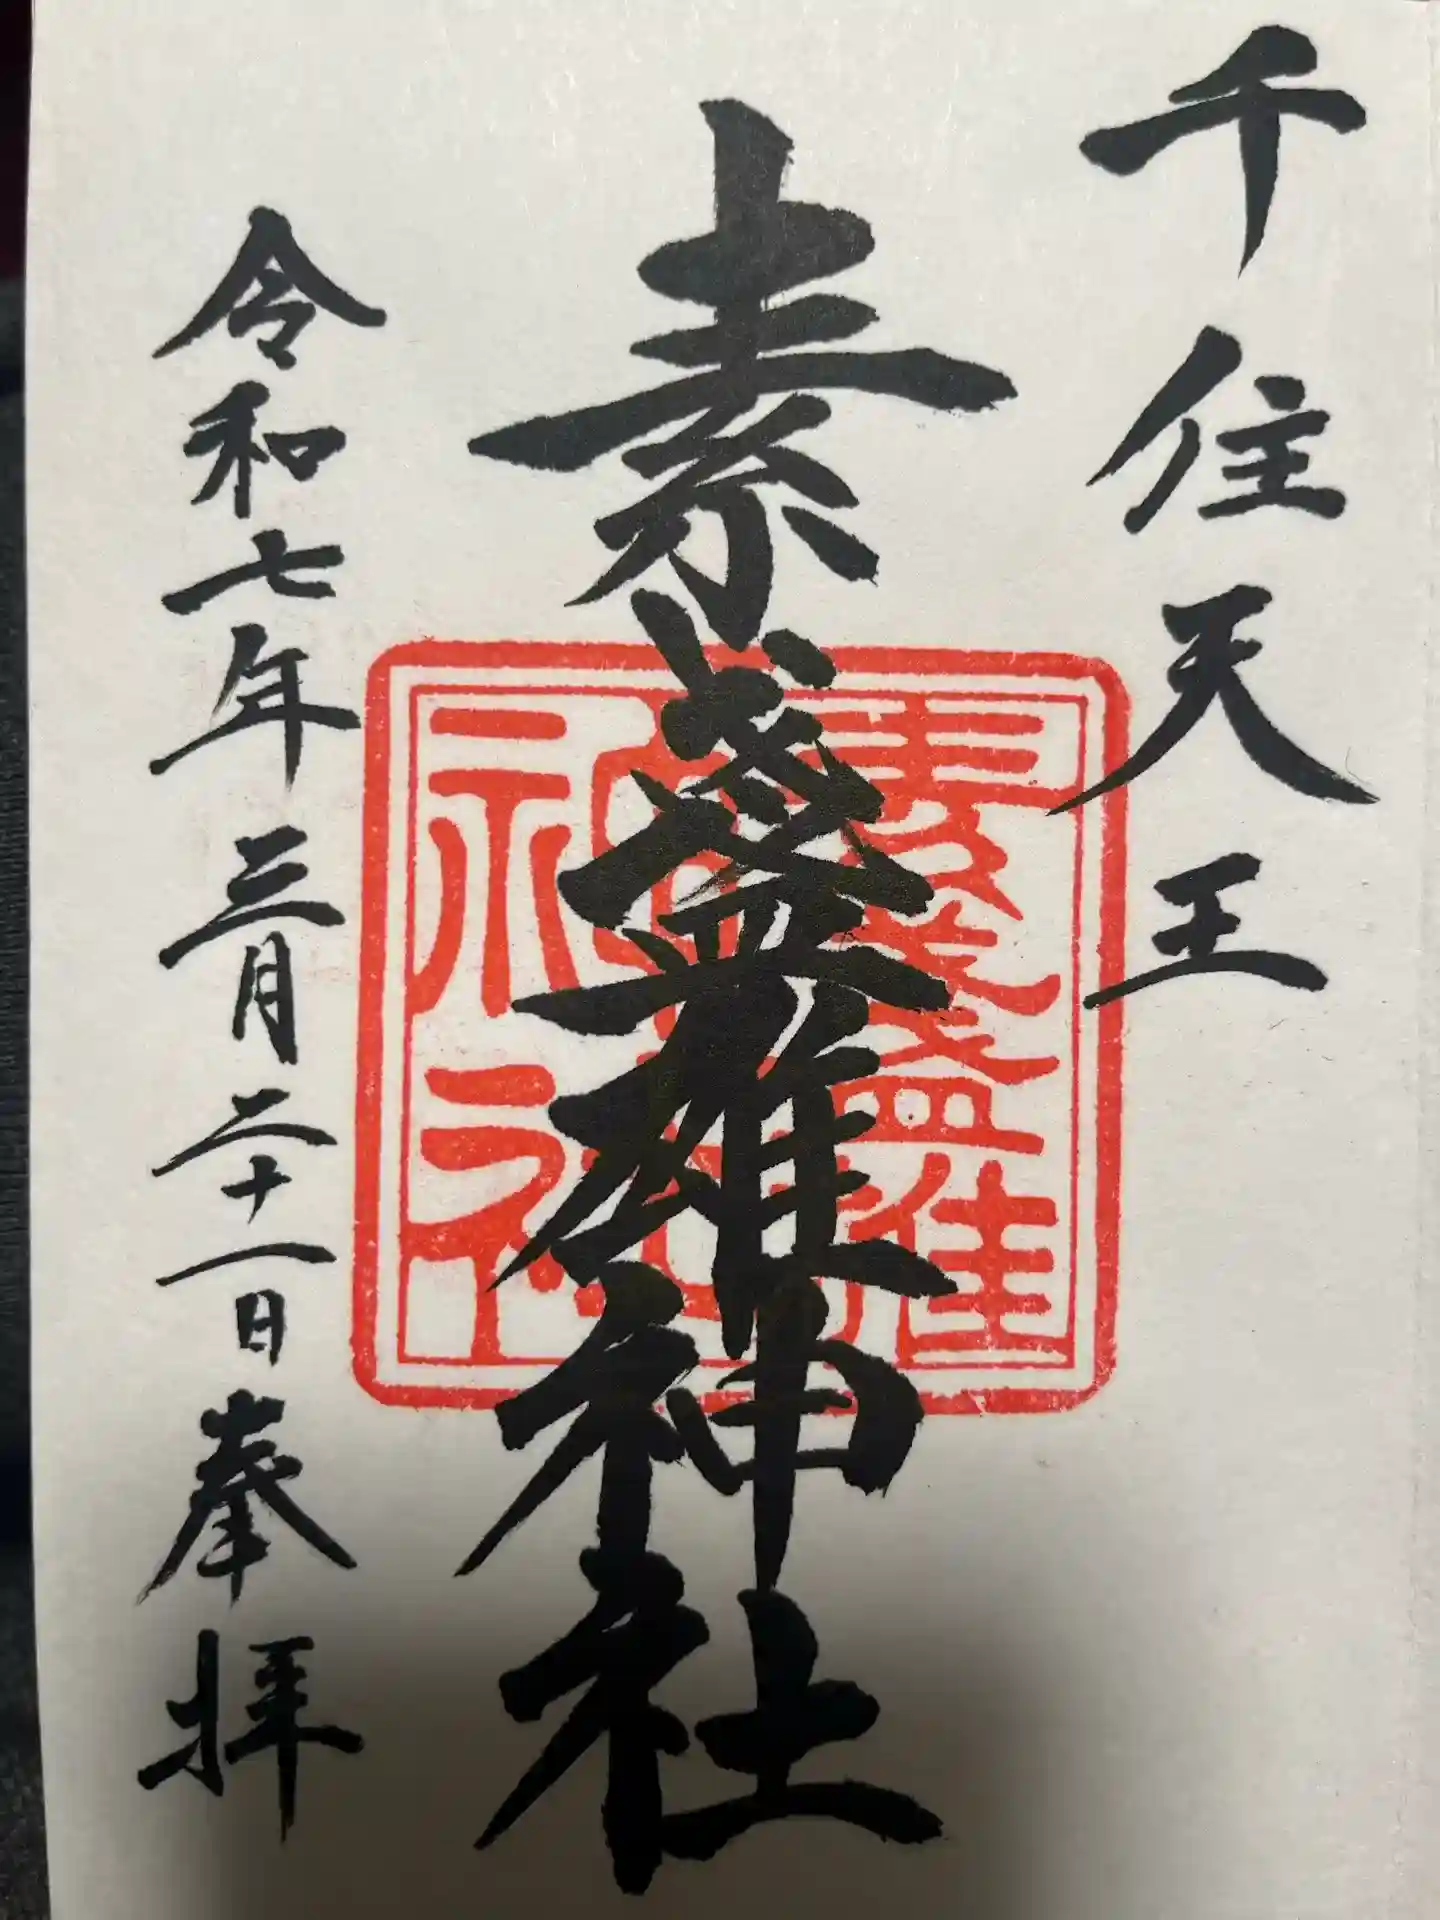 千住天王
素盞雄神社
素盞雄
神社
令和七年三月二十一日奉拝